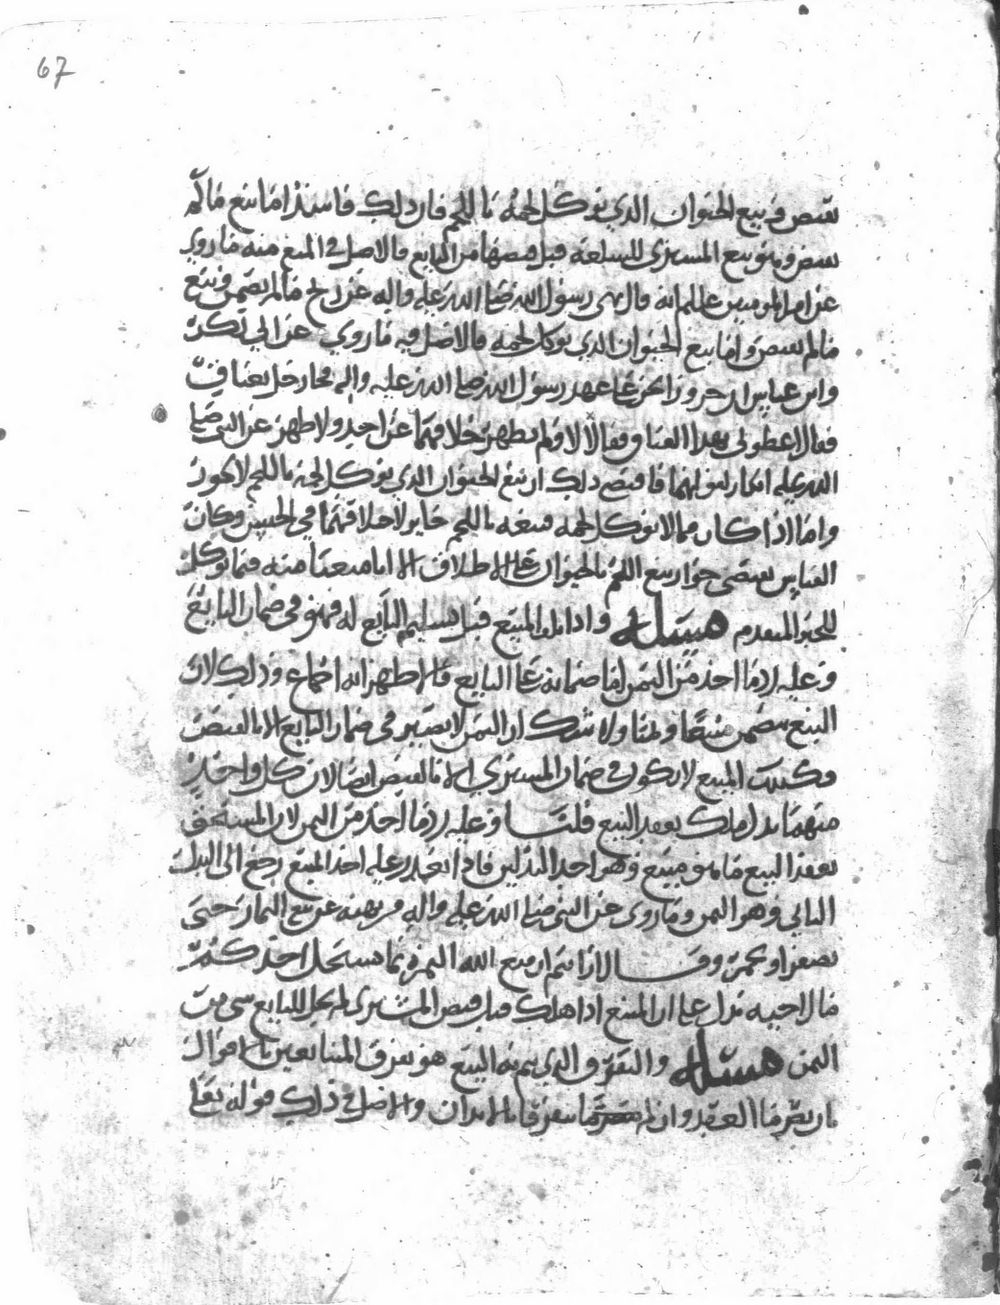 67
يقبض وبيع الحيوان الذي يؤكل لحمه باللحم فان ذلك فاسد اما بيع مالم
يقبض وهو بيع المشتري للسلعة قبل قبضها من البايع فالاصل في المنع منه ما روي
عن امير المومنين علي انه قال نهى رسول الله صلى الله عليه واله عن ربح مالم يضمن وبيع
مالم يقبض واما بيع الحيوان الذي يوكل لحمه فالاصل فيه ما روي عن ابي بكر
وابن عباس ان جزورا نحر على عهد رسول الله صلى الله عليه واله فجا رجل بعناق
فقال اعطوني بهذا العناق فقالا لا ولم يظهر خلافهما عن احد ولا ظهر عن النبي صلى
الله عليه انكار لقولهما فاقتضى ذلك ان بيع الحيوان الذي يؤكل لحمه باللحم لا يجوز
واما اذا كان مما لا يوكل لحمه فبيعه باللحم جايز لاختلافهما في الجنس وكان
القياس يقتضي جواز بيع اللحم بالحيوان على الاطلاق الا انا منعنا منه فيما يوكل
للخبر المتقدم مسئلة واذا تلف المبيع قبل تسليم البايع له فهو في ضمان البايع
وعليه رد ما اخذ من الثمن اما ضمانه على البايع فالاظهر انه اجماع وذلك لان
البيع يتضمن مبيعا وثمنا ولا شك ان الثمن لا يصير في ضمان البايع الا بالقبض
وكذلك المبيع لا يكون في ضمان المشتري الا بالقبض ايضا لان كل واحد
منهما بدل ملك بعقد البيع قلنا وعليه رد ما اخذ من الثمن لان المستحق
بعقد البيع ما هو مبيع وهو احد البدلين فاذا تعذر عليه اخذ المبيع رجع الى البدل
الثاني وهو الثمن وما روي عن النبي صلى الله عليه واله من نهيه عن بيع الثمار حتى
تصفر او تحمر وقال ارايتم ان منع الله الثمرة بما يستحل احدكم
مال اخيه يدل على ان المبيع اذا هلك قبل قبض المشتري لم يحل للبايع شي من
الثمن مسئلة والتفرق الذي يتم به البيع هو تفرق المتبايعين بالاقوال
بان يتما العقد وان لم يتفرقا بالابدان والاصل في ذلك قوله تعالى